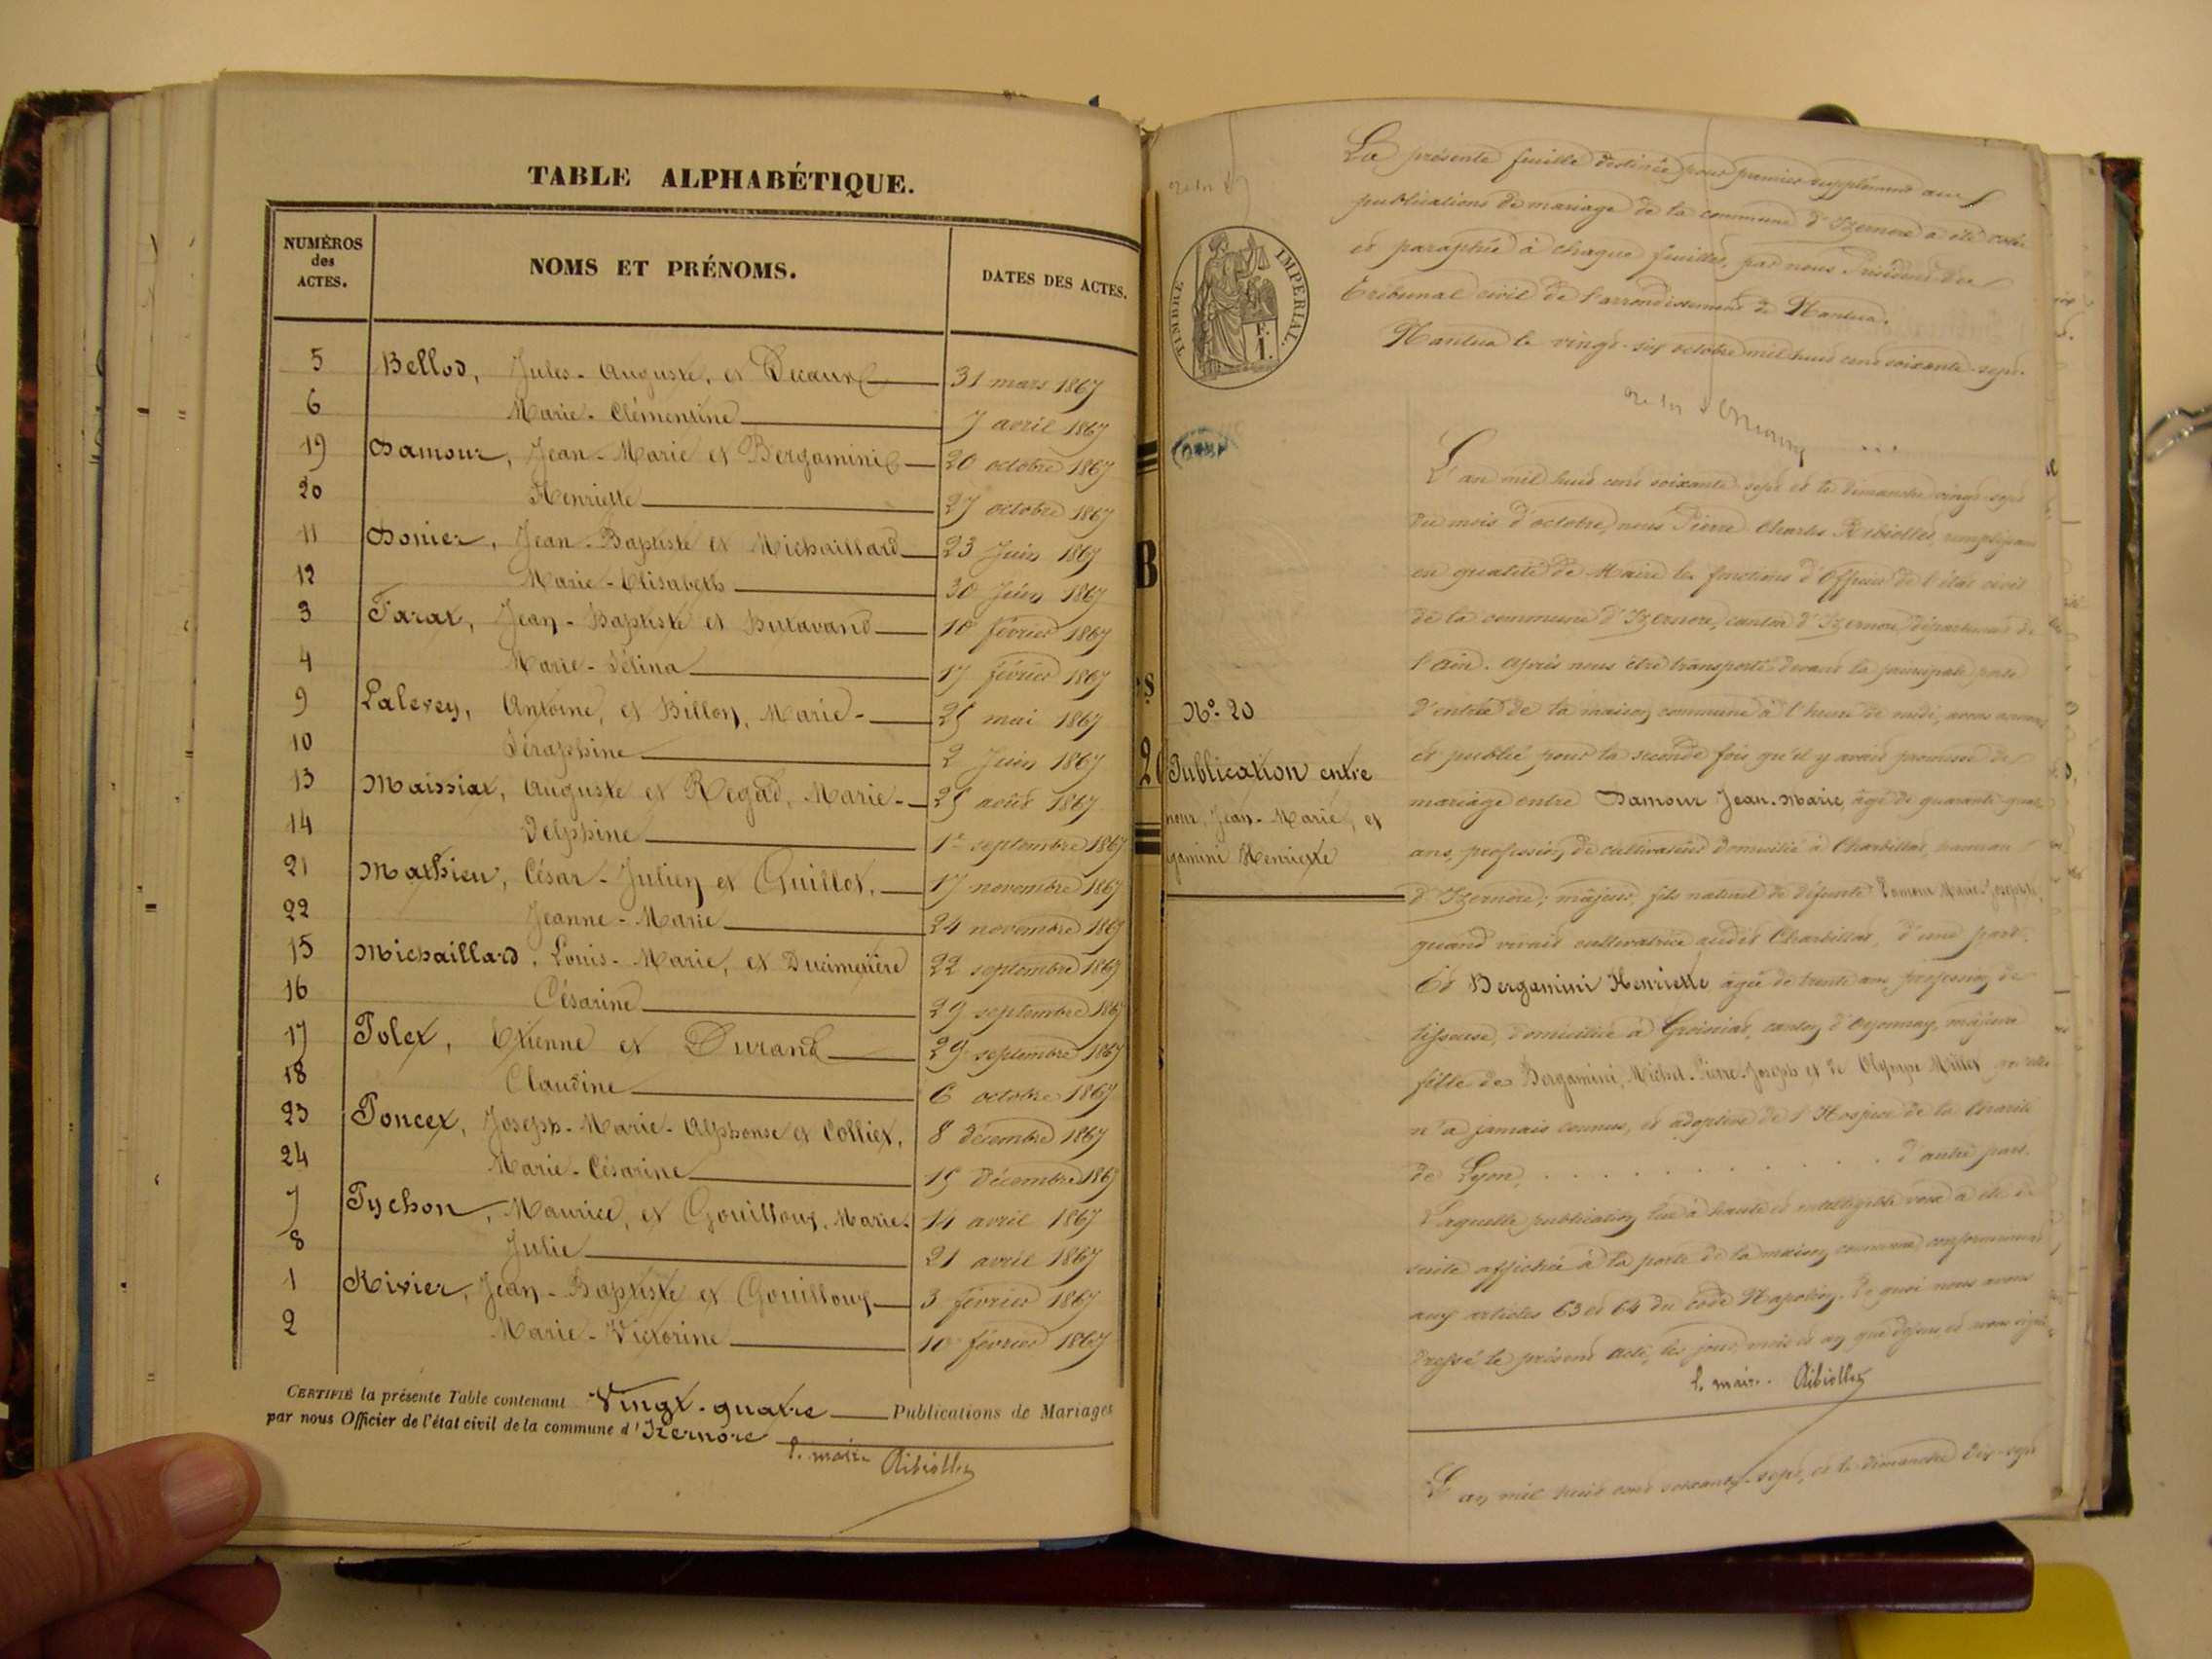 TABLE ALPHABÉTIQUE.
NUMÉROS des ACTES.
NOMS ET PRÉNOMS.
DATES DES ACTES.
5 Bellod, Jules-Auguste, et Decaux 31 mars 1867
6 Marie-Clémentine 7 avril 1867
19 Damour, Jean-Marie et Bergamini 20 octobre 1867
20 Henriette 27 octobre 1867
11 Donier, Jean-Baptiste et Michaillard 23 Juin 1867
12 Marie-Elisabeth 30 Juin 1867
3 Farat, Jean-Baptiste et Butavand 10 février 1867
4 Marie-Sélina 17 février 1867
9 Lalevey, Antoine, et Billon, Marie- 25 mai 1867
10 Séraphine 2 Juin 1867
13 Maissiat, Auguste et Regad, Marie- 25 août 1867
14 Delphine 1er septembre 1867
21 Mathieu, César-Julien et Guillot, 17 novembre 1867
22 Jeanne-Marie 24 novembre 1867
15 Michaillard, Louis-Marie, et Ducimetière 22 septembre 1867
16 Césarine 29 septembre 1867
17 Polet, Etienne et Durand 29 septembre 1867
18 Claudine 6 octobre 1867
23 Poncet, Joseph-Marie-Alphonse et Colliex, 8 décembre 1867
24 Marie-Césarine 15 Décembre 1867
7 Pychon, Maurice, et Gouilloux, Marie- 14 avril 1867
8 Julie 21 avril 1867
1 Rivier, Jean-Baptiste et Gouilloux 3 février 1867
2 Marie-Victorine 10 février 1867
CERTIFIÉ la présente Table contenant Vingt-quatre Publications de Mariages
par nous Officier de l'état civil de la commune d'Izernore
l. maire Ribiollet
B
TIMBRE IMPÉRIAL.
F. I.
La présente feuille destinée pour premier supplément aux
publications de mariage de la commune d'Izernore a été cotée
et paraphée à chaque feuillet, par nous Président du
Tribunal civil de l'arrondissement de Nantua.
Nantua le vingt-six octobre mil huit cent soixante-sept.
N° 20
Publication entre
mour, Jean-Marie, et
gamini Henriette
L'an mil huit cent soixante sept et le dimanche vingt-sept
du mois d'octobre, nous Pierre Charles Ribiollet, remplissant
en qualité de Maire les fonctions d'Officier de l'état civil
de la commune d'Izernore, canton d'Izernore, département de
l'Ain. Après nous être transporté devant la principale porte
d'entrée de la maison commune à l'heure de midi, avons annoncé
et publié pour la seconde fois qu'il y avait promesse de
mariage entre Damour Jean-Marie, âgé de quarante-quatre
ans, profession de cultivateur domicilié à Charbillat, hameau
d'Izernore; majeur, fils naturel de défunte Damour Marie-Josephte,
quand vivait cultivatrice audit Charbillat, d'une part.
Et Bergamini Henriette âgée de trente ans, profession de
tisseuse, domiciliée à Groissiat, canton d'Oyonnax, majeure
fille de Bergamini, Michel-Pierre-Joseph et de Olympe Millet qu'elle
n'a jamais connus, et adoptive de l'Hospice de la Charité
de Lyon, . . . . . . . . . . . . d'autre part.
Laquelle publication lue à haute et intelligible voix a été de
suite affichée à la porte de la maison commune conformément
aux articles 63 et 64 du code Napoléon. De quoi nous avons
dressé le présent acte, les jour, mois et an que dessus, et avons signé
l. maire. Ribiollet
L'an mil huit cent soixante-sept, et le dimanche dix-sept